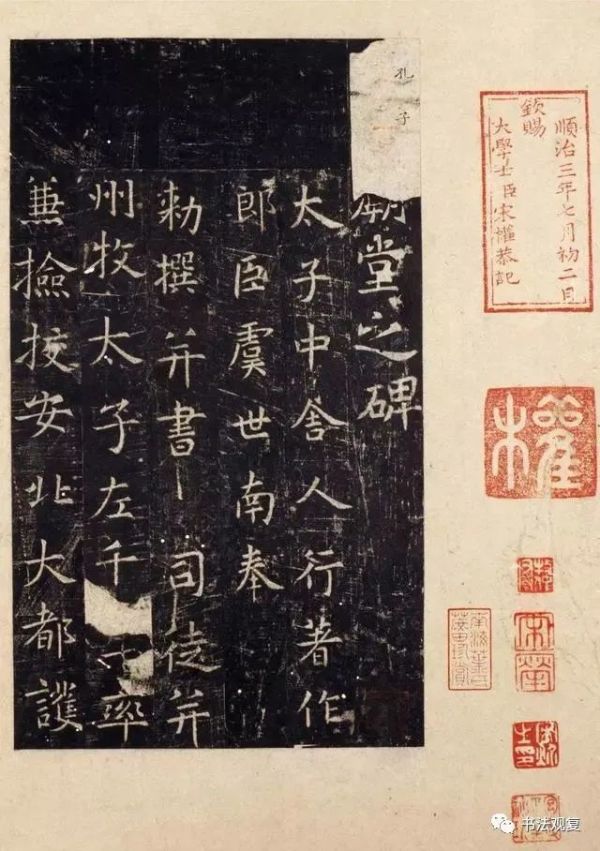 順治三年七月初二日
欽賜
大學士臣宋權恭記
權
孔子
廟堂之碑
太子中舍人行著作
郎臣虞世南奉
勑撰并書 司徒并
州牧太子左千率
兼撿挍安北大都護
书法观复